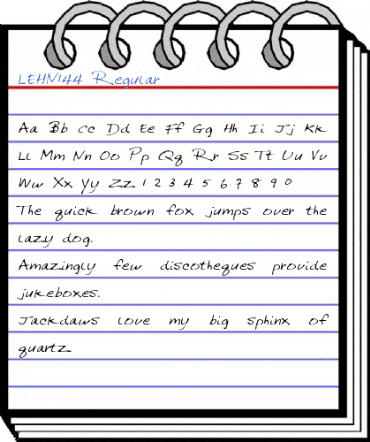 LEHN144 Regular
Aa Bb Cc Dd Ee Ff Gg Hh Ii Jj Kk
Ll Mm Nn Oo Pp Qq Rr Ss Tt Uu Vv
Ww Xx Yy Zz 1 2 3 4 5 6 7 8 9 0
The quick brown fox jumps over the
lazy dog.
Amazingly few discotheques provide
jukeboxes.
Jackdaws love my big sphinx of
quartz.